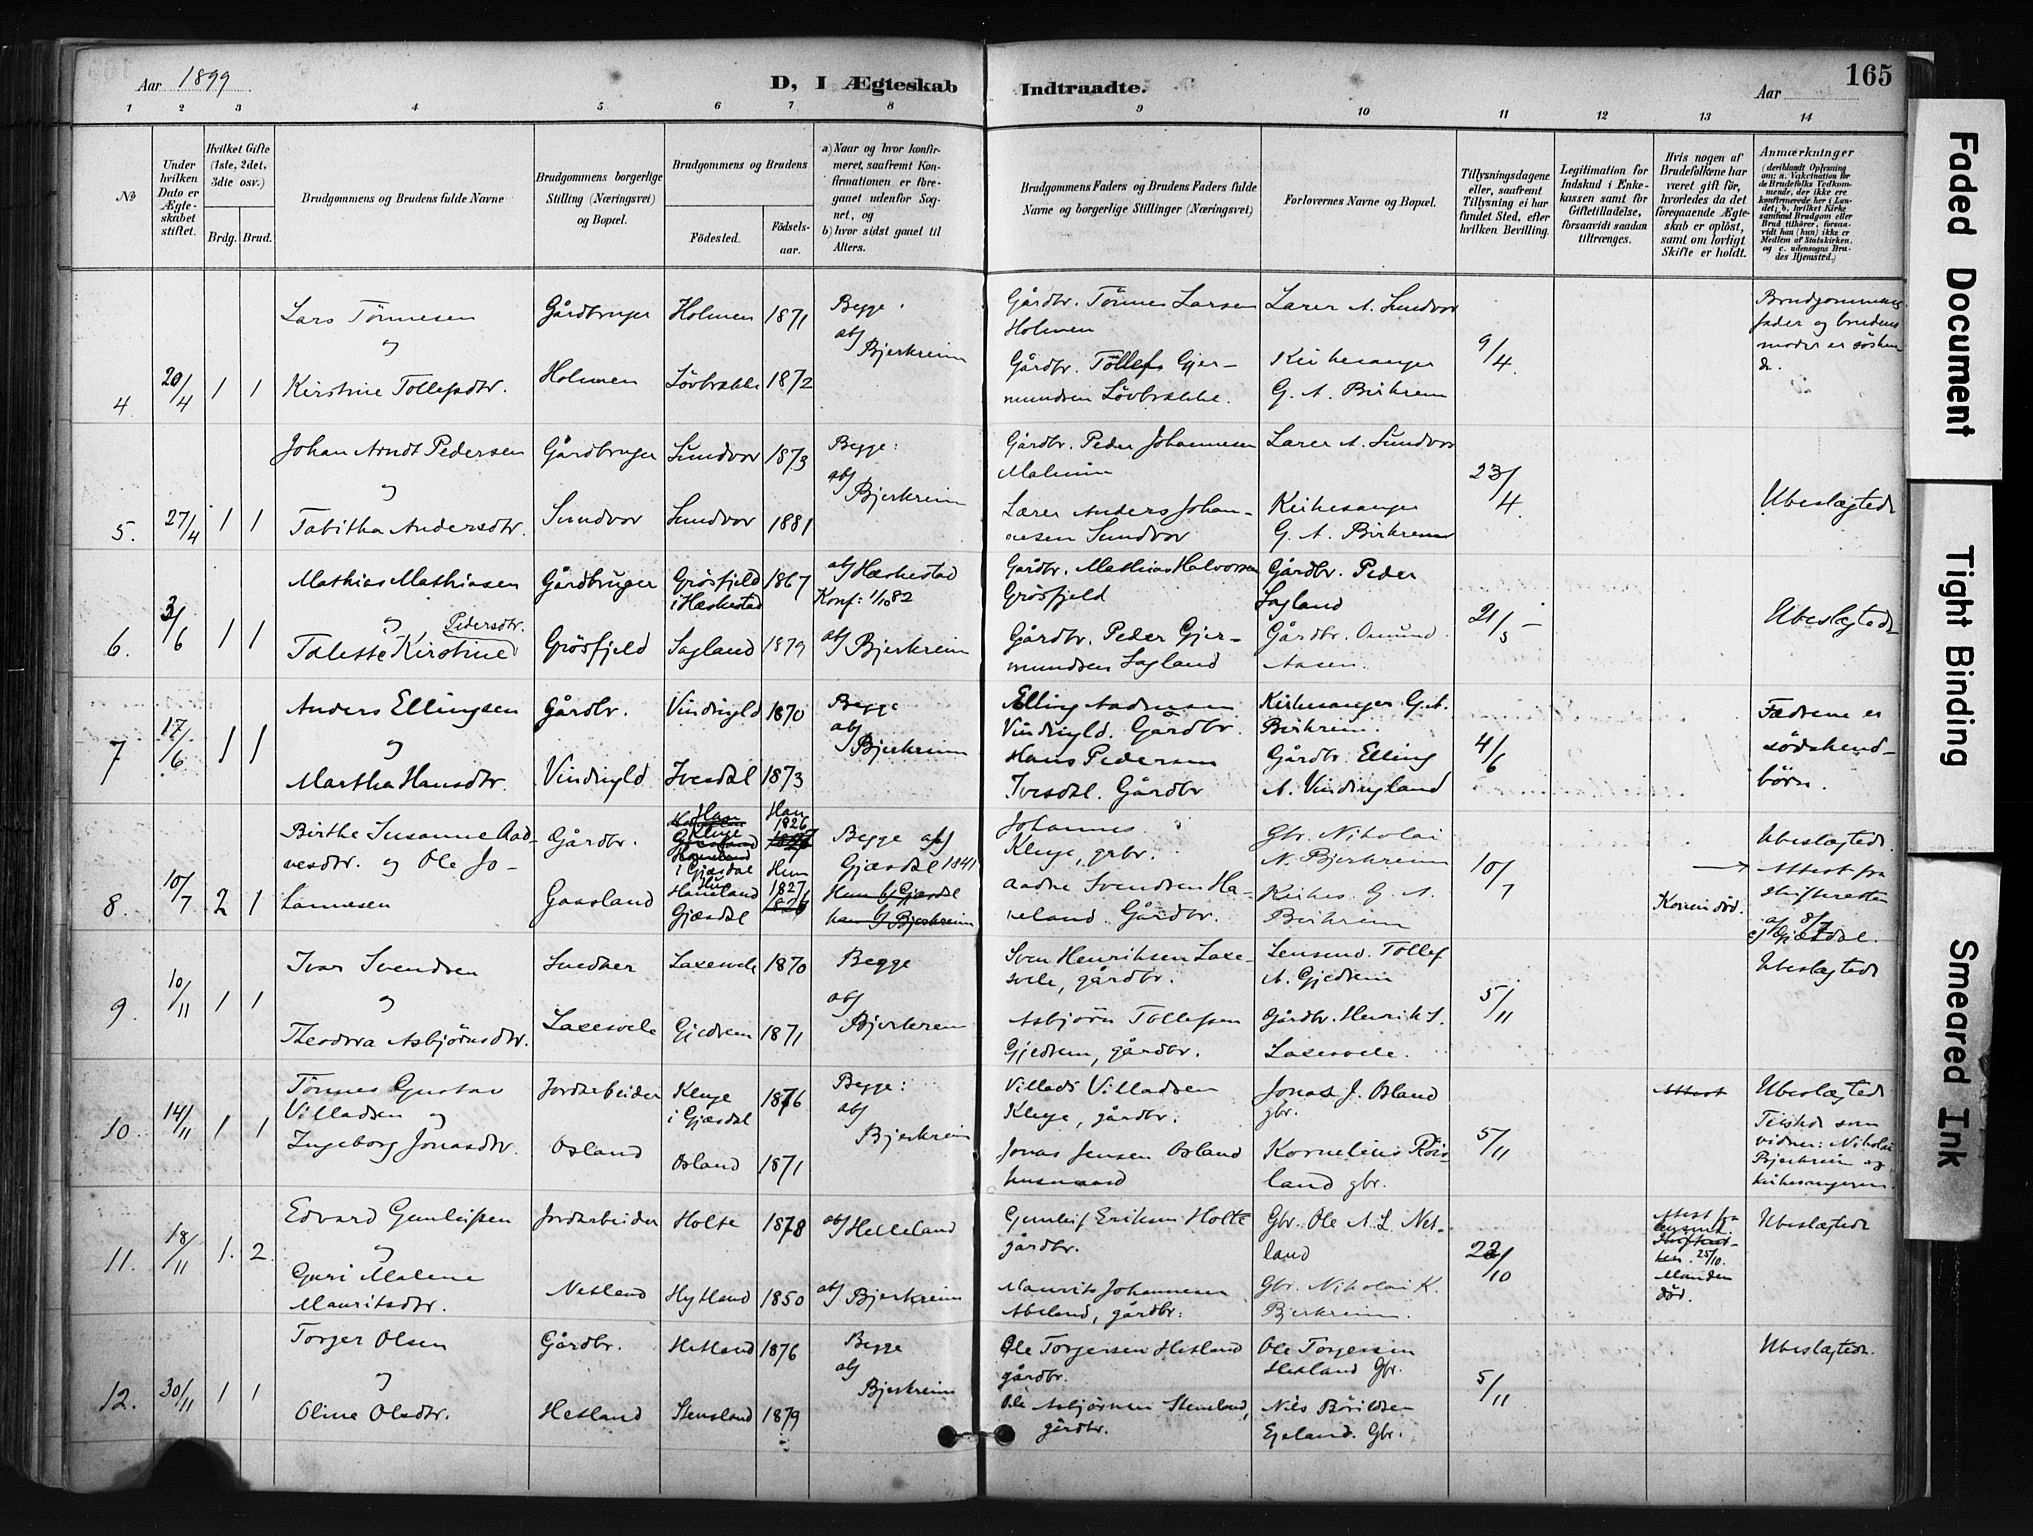 165
Aar 1899
D, I Ægteskab Indtraadte.
Aar
1 2 3 4 5 6 7 8 9 10 11 12 13 14
No
Under hvilken Dato er Ægteskabet stiftet.
Hvilket Gifte (1ste, 2det, 3die osv.)
Brdg. Brud.
Brudgommens og Brudens fulde Navne
Brudgommens borgerlige Stilling (Næringsvei) og Bopæl.
Brudgommens og Brudens
Fødested.
Fødselsaar.
a) Naar og hvor konfirmeret, saafremt Konfirmationen er foregaaet udenfor Sognet, og
b) hvor sidst gaaet til Alters.
Brudgommens Faders og Brudens Faders fulde Navne og borgerlige Stillinger (Næringsvei)
Forlovernes Navne og Bopæl.
Tillysningsdagene eller, saafremt Tillysning ei har fundet Sted, efter hvilken Bevilling.
Legitimation for Indskud i Enkekassen samt for Giftetilladelse, forsaavidt saadan tiltrænges.
Hvis nogen af Brudefolkene har været gift før, hvorledes da det foregaaende Ægteskab er opløst, samt om lovligt Skifte er holdt.
Anmærkninger
(deriblandt Oplysning om: a. Vakcination for de Brudefolks Vedkommende, der ikke ere konfirmerede her i Landet; b. hvilket Kirkesamfund Brudgom eller Brud tilhører, forsaavidt han (hun) ikke er Medlem af Statskirken, og c. udensogns Brudes Hjemsted.)
4. 20/4 1 1
Lars Tönnesen
og
Kirstine Tollefsdtr.
Gårdbruger
Holmen
Holmen 1871
Løvbrække 1872
Begge
ab/ Bjerkreim
Gårdbr. Tönnes Larsen
Holmen
Gårdbr. Tollef Gjermundsen Løvbrække.
Lærer A. Sundvor
Kirkesanger
G. A. Birkrem
9/4.
Brudgommens fader og brudens moder er søskende.
5. 27/4 1 1
Johan Arndt Pedersen
og
Tabitha Andersdtr.
Gårdbruger
Sundvor
Sundvor 1873
Sundvor 1881
Begge:
ab/ Bjerkreim
Gårdbr. Peder Johannesen
Lærer Anders Johannesen Sundvor
Lærer A. Sundvor
Kirkesanger
G. A. Birkrem
23/4.
Ubeslægtede
6. 3/6 1 1
Mathias Mathiasen
og Pedersdtr.
Talette Kirstine
Gårdbruger
Grösfjeld
Grösfjeld i Hæskestad 1867
Sagland 1879
ab/ Hæskestad
Konf: 1/10 82
ab/ Bjerkreim
Gårdbr. Mathias Halvorsen
Grösfjeld
Gårdbr. Peder Gjermundsen Sagland
Gårdbr. Peder
Sagland
Gårdbr. Omund
Aasen.
21/5
Ubeslægtede
7 17/6 1 1
Anders Ellingsen
og
Martha Hansdtr.
Gårdbr.
Vindingld.
Vindingld 1870
Ivesdal 1873
Begge
ab/ Bjerkreim
Elling
Vindingld. Gårdbr.
Hans Pedersen
Ivesdal. Gårdbr
Kirkesanger G. A.
Birkrem.
Gårdbr. Elling
A. Vindingland
4/6
Fædrene er sødskendbörn.
8. 10/7 2 1
Birthe Susanne Aadnesdtr. og Ole Johannesen
Gårdbr.
Gaasland
Han
Kluge
i Gjæsdal
Haneland
Gjæsdal
Han 1826
Hun 1827
Begge ab/
Gjæsdal 1841
Hun b/ Gjæsdal
han b/ Bjerkreim
Johannes
Kluge, grbr.
Aadne Svendsen Haneland. Gårdbr.
Gbr. Nikolai
N. Bjerkreim
Kirkes. G. A.
Birkrem
10/7
Konen død.
Ubeslægtede.
Attest fra Skifteretten af 8/7
Gjæsdal.
9. 10/11 1 1
Ivar Svendsen
og
Theodora Asbjørnsdtr.
Snedker
Laxesvele
Laxesvele 1870
Gjedrem 1871
Begge
ab/
Bjerkreim
Sven Henriksen Laxesvele, gårdbr.
Asbjörn Tollefsen
Gjedrem, gårdbr.
Lensmd. Tollef
A. Gjedrem
Gårdbr. Henrik S.
Laxesvele.
5/11
Ubeslægtede
10. 14/11 1 1
Tönnes Gustav
Villadsen og
Ingeborg Jonasdtr.
Jordarbeider
Osland
Kluge i Gjæsdal 1876
Osland 1871
Begge:
ab/
Bjerkreim
Villads Villadsen
Kluge, gårdbr.
Jonas Jensen Osland
husmand
Jonas J. Osland
gbr.
Kornelius Röisland gbr.
5/11
Attest
Ubeslægtede
Teistede som vidner: Nikolai Bjerkreim og kirkesangeren.
11. 18/11 1. 2
Edvard Gunleifsen
og
Guri Malene
Mauritsdtr.
Jordarbeider
Netland
Holte 1878
Hytland 1850
ab/ Helleland
ab/ Bjerkreim
Gunleif Eriksen Holte
gårdbr.
Maurits Johannesen
Abeland, gårdbr.
Gbr. Ole A. L. Netland
Gbr. Nikolai K.
Bjerkreim.
22/10
Attest fra
lensmd
25/10.
Manden død.
Ubeslægtede
12. 30/11 1 1
Torger Olsen
og
Oline Olsdtr.
Gårdbr.
Hetland
Hetland 1876
Stensland 1879
Begge
ab/
Bjerkreim
Ole Torgersen Hetland
gårdbr.
Ole Asbjörnsen Stensland,
gårdbr.
Ole Torgersen
Hetland Gbr.
Nils Bårildsen
Ejeland. Gbr.
5/11
Ubeslægtede.
Faded Document
Tight Binding
Smeared Ink